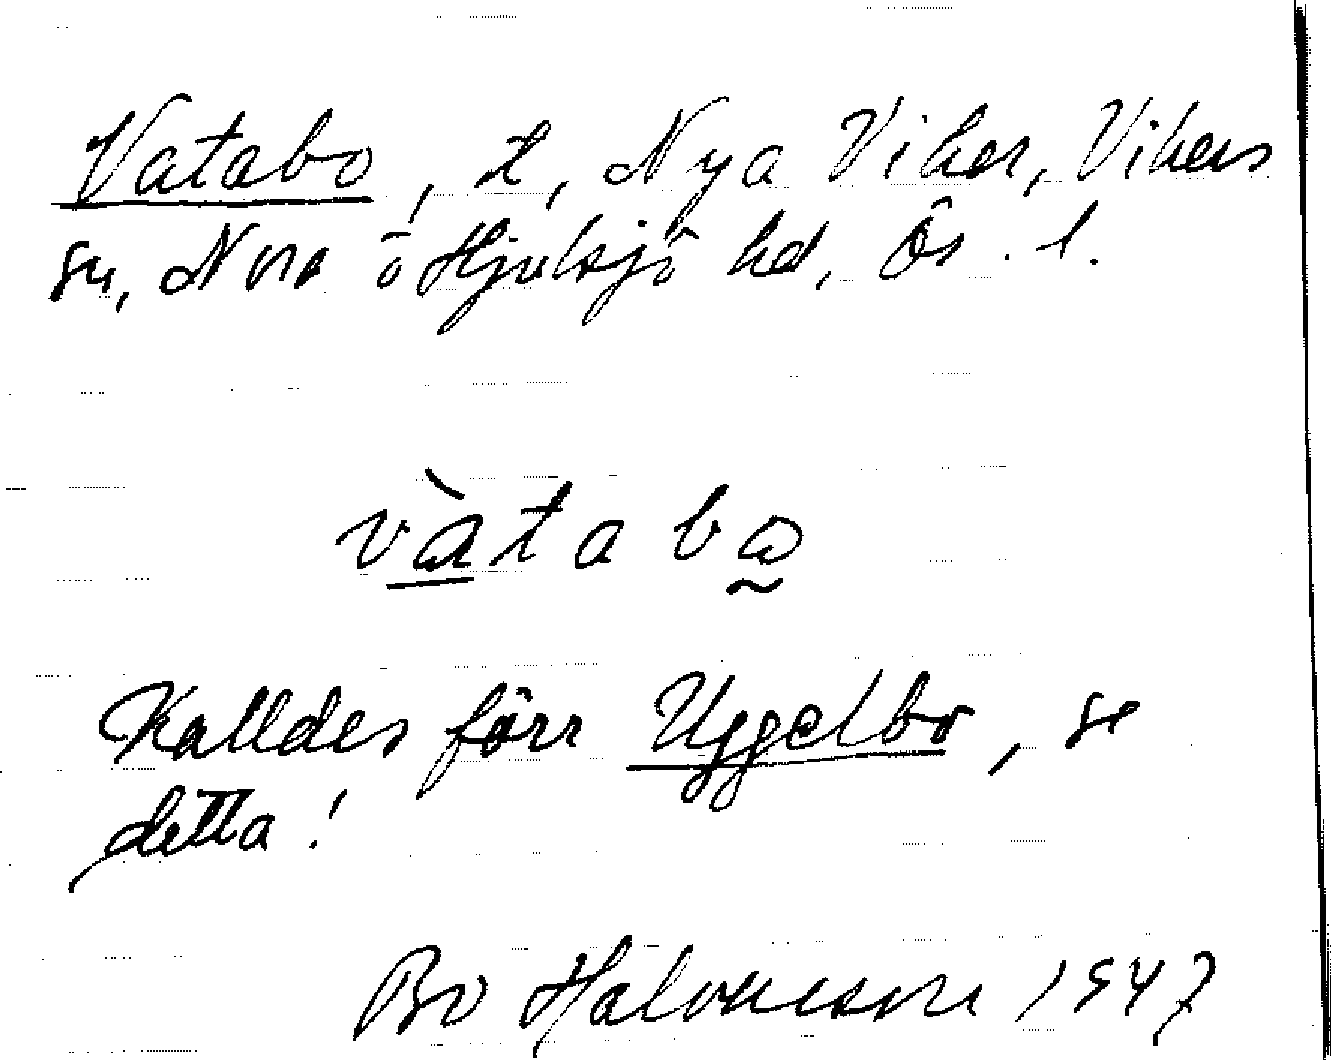 Vatabo, t, Nya Viker, Vikers
sn, Nora o Hjulsjö hd, Ös. l.
vàtabω
Kalldes förr Uggelbo, se
detta!
Bo Halvarsson 1947